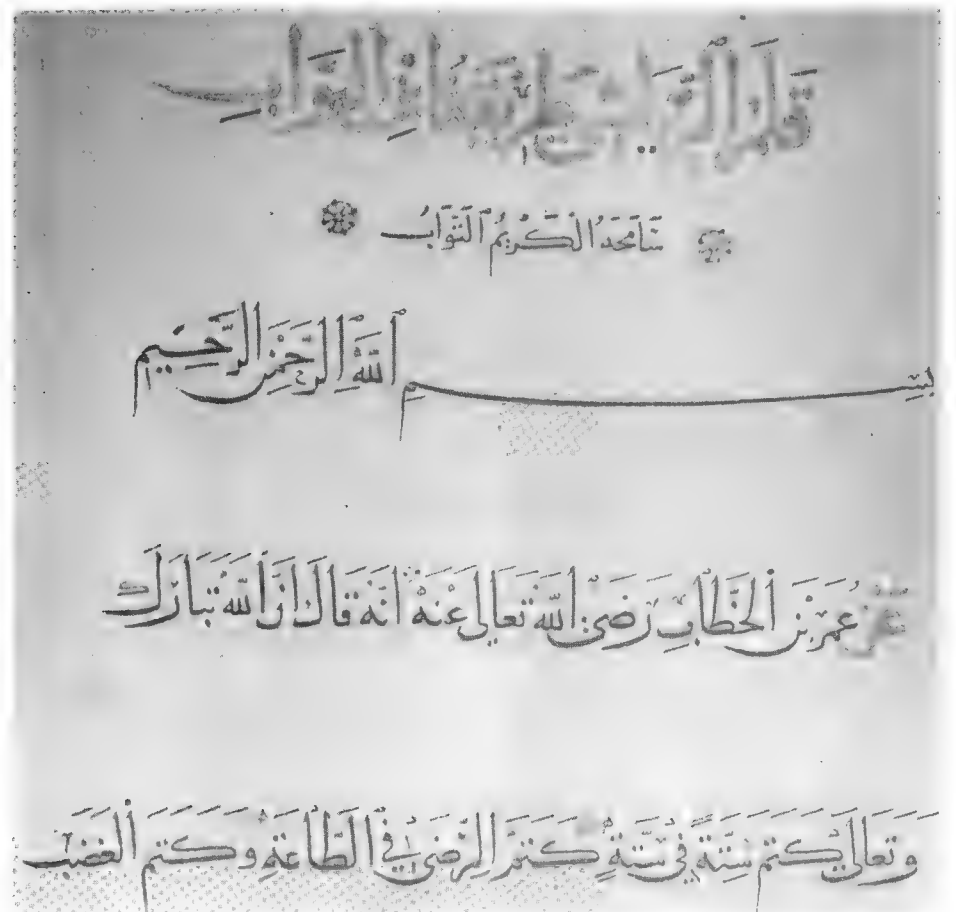 سَامَحَهُ الْكَرِيمُ التَّوَّابُ
بِسْمِ اللَّهِ الرَّحْمَنِ الرَّحِيمِ
عَنْ عُمَرَ بْنِ الْخَطَّابِ رَضِيَ اللَّهُ تَعَالَى عَنْهُ أَنَّهُ قَالَ إِنَّ اللَّهَ تَبَارَكَ
وَتَعَالَى كَتَمَ سِتَّةً فِي سِتَّةٍ كَتَمَ الرِّضَى فِي الطَّاعَةِ وَكَتَمَ الْغَضَبَ